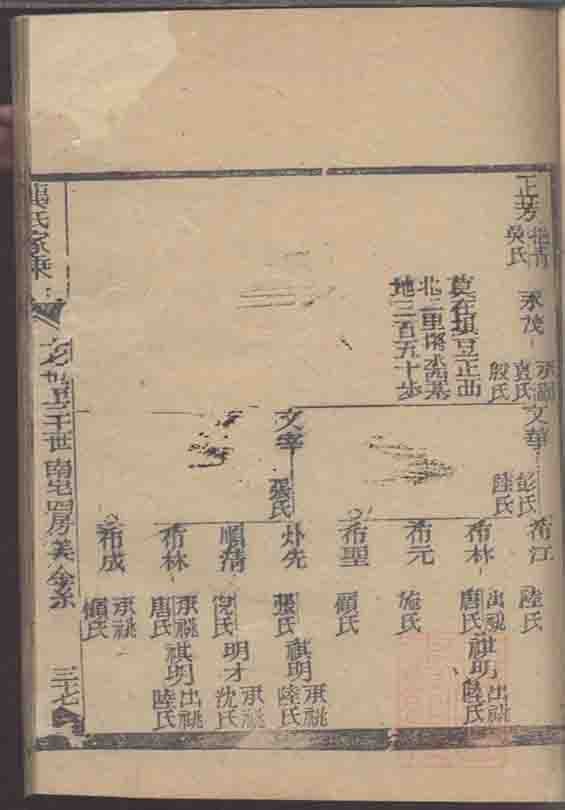 正芳
吳氏
永茂
承祧
袁氏
殷氏
莫在垻豆正曲
北二里
地三百五十步
文華
彭氏
陸氏
文宰
張氏
希江
陸氏
希林
出祧
唐氏
祺明
出祧
陸氏
希元
施氏
希聖
顧氏
炑先
張氏
祺明
承祧
陸氏
順清
倪氏
明才
承祧
沈氏
希林
承祧
唐氏
祺明
出祧
陸氏
希成
承祧
顧氏
氏家乘
世至二十世 南宅四房美金系
三十七